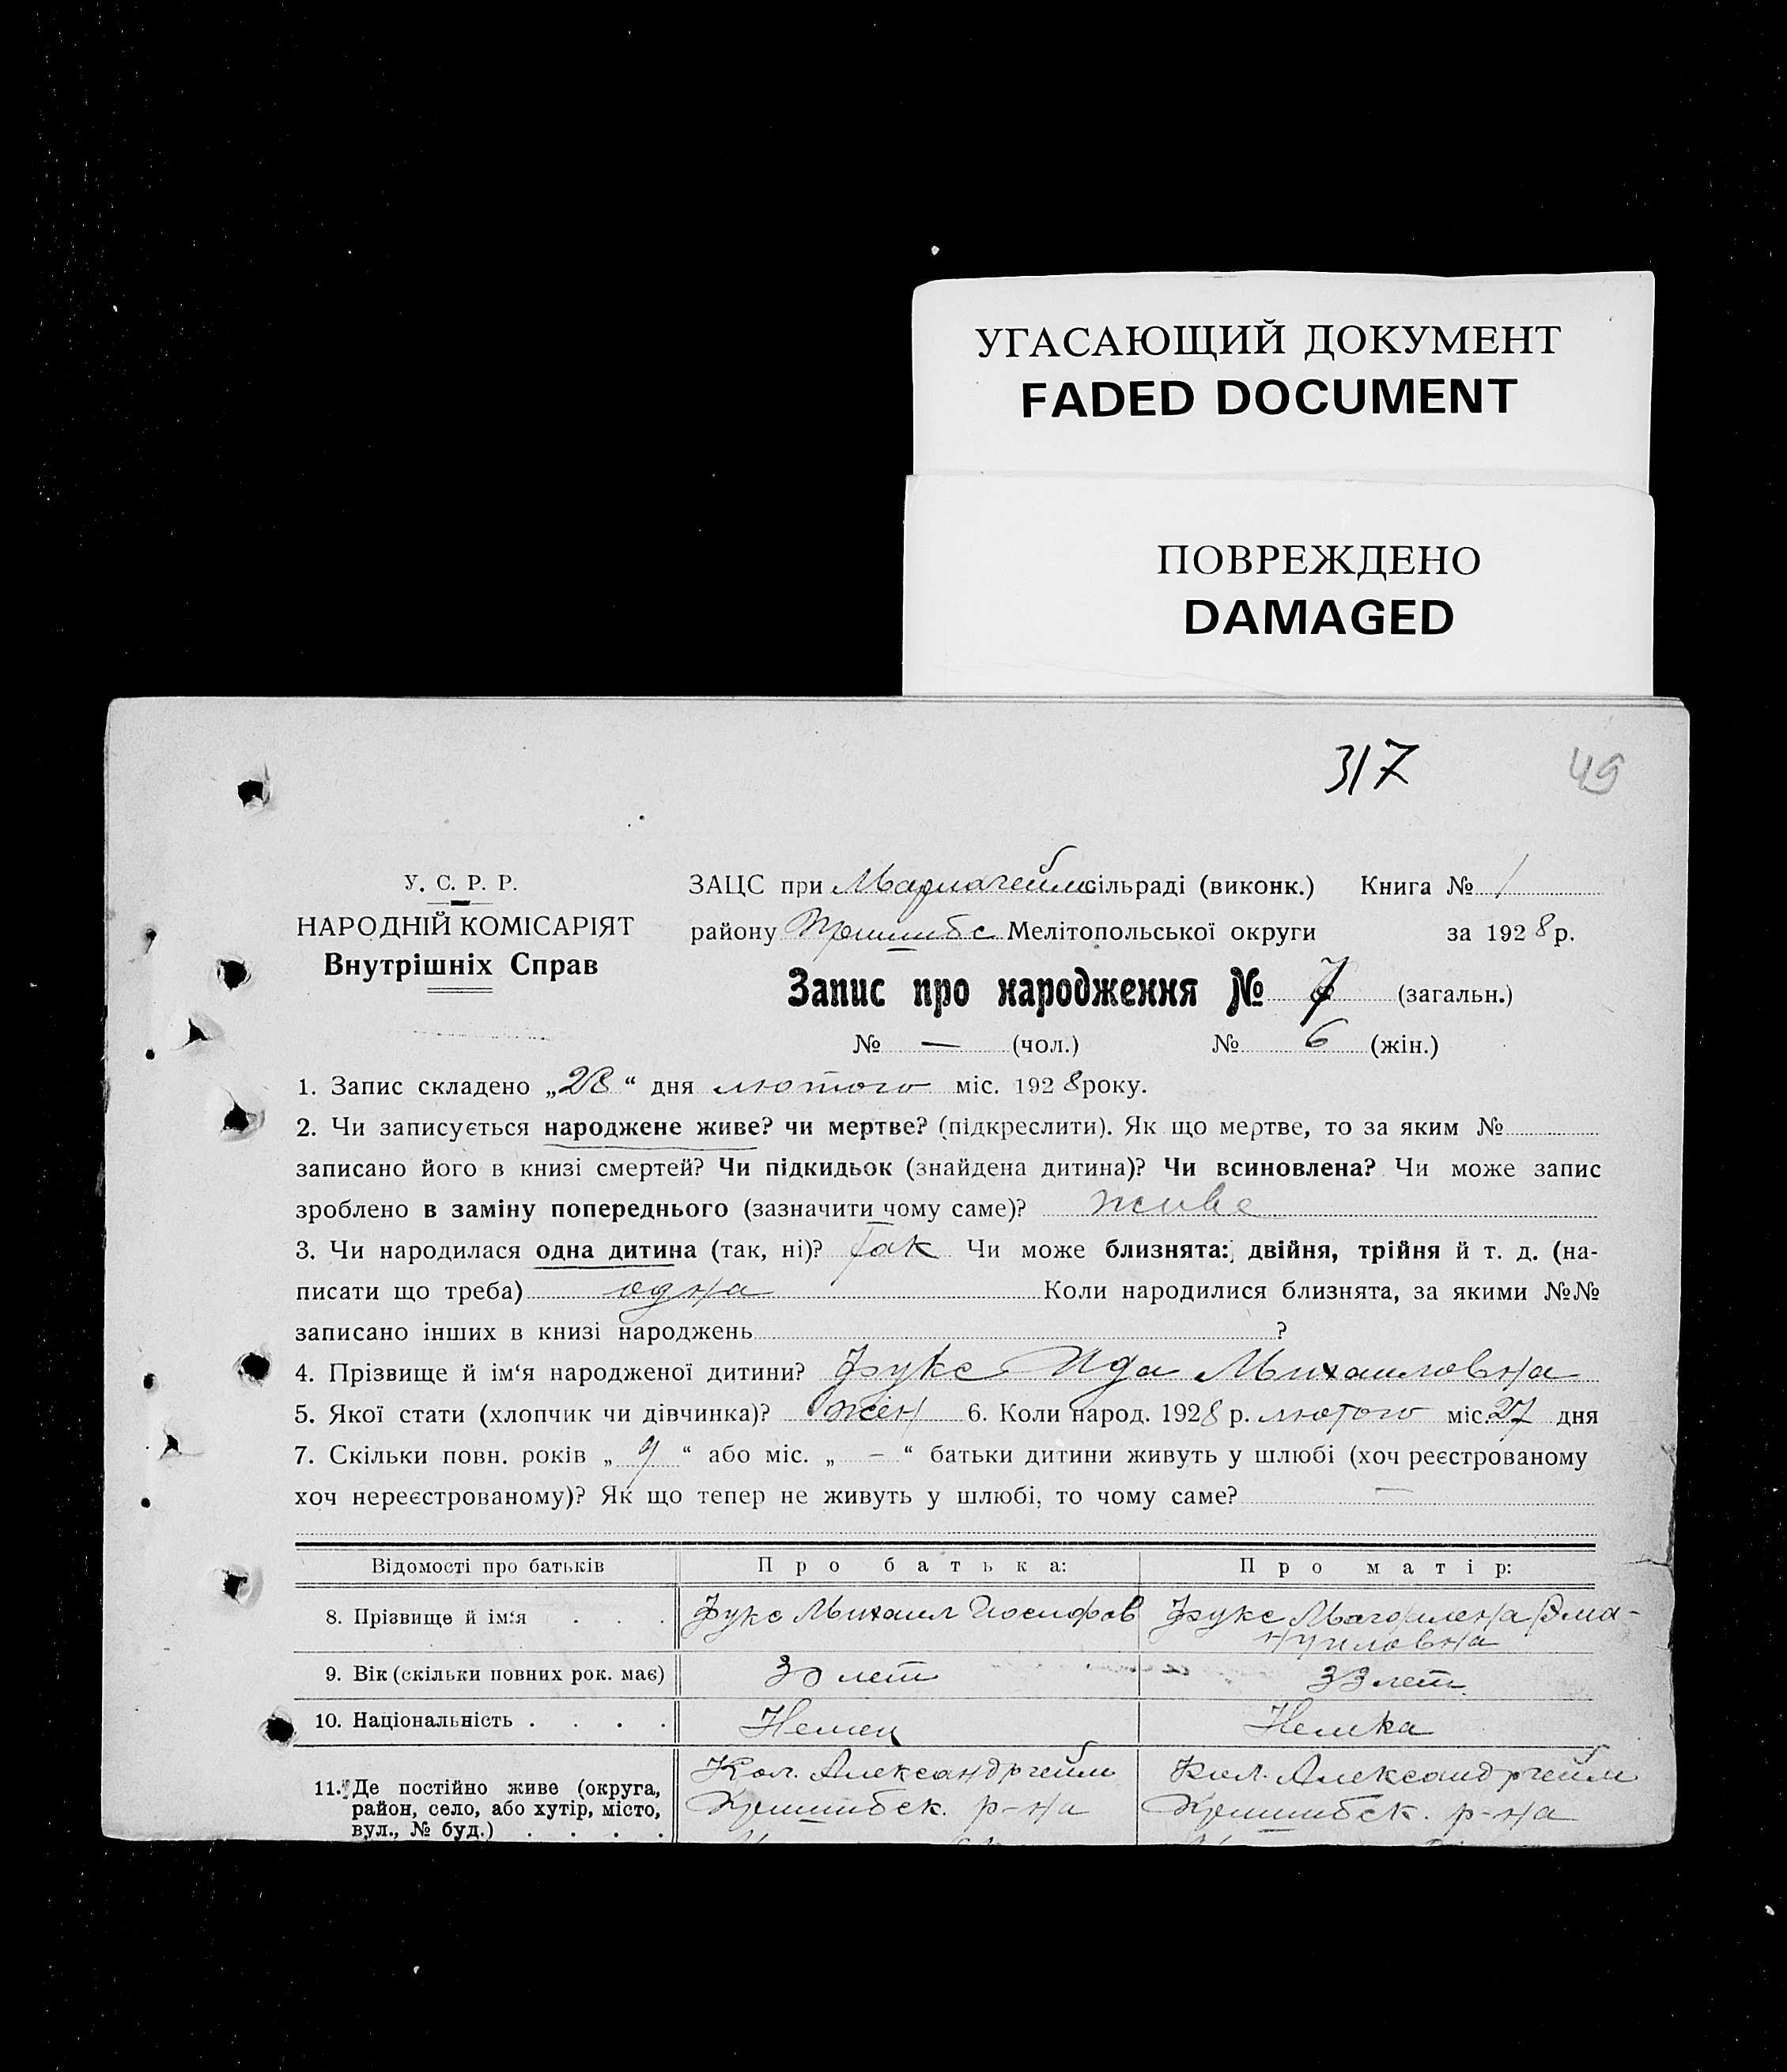 УГАСАЮЩИЙ ДОКУМЕНТ
FADED DOCUMENT
ПОВРЕЖДЕНО
DAMAGED
317 49
У. С. Р. Р.
НАРОДНІЙ КОМІСАРІЯТ
Внутрішніх Справ
ЗАЦС при Мариагеймсільраді (виконк.) Книга № 1
району Пришибс Мелітопольської округи за 1928 р.
Запис про народження № 7 (загальн.)
№ — (чол.) № 6 (жін.)
1. Запис складено „28“ дня лютого міс. 1928 року.
2. Чи записується народжене живе? чи мертве? (підкреслити). Як що мертве, то за яким №
записано його в книзі смертей? Чи підкидьок (знайдена дитина)? Чи всиновлена? Чи може запис
зроблено в заміну попереднього (зазначити чому саме)? живе
3. Чи народилася одна дитина (так, ні)? так Чи може близнята: двійня, трійня й т. д. (на-
писати що треба) одна Коли народилися близнята, за якими №№
записано інших в книзі народжень ?
4. Прізвище й ім‘я народженої дитини? Фукс Ида Михаиловна
5. Якої стати (хлопчик чи дівчинка)? жін 6. Коли народ. 1928 р. лютого міс. 27 дня
7. Скільки повн. років „ 9 “ або міс. „ – “ батьки дитини живуть у шлюбі (хоч реєстрованому
хоч нереєстрованому)? Як що тепер не живуть у шлюбі, то чому саме? —
Відомості про батьків Про батька: Про матір:
8. Прізвище й ім‘я . . . Фукс Михаил Иосифов Фукс Магдилена Эма-
нуиловна
9. Вік (скільки повних рок. має) 30 лет 33 лет
10. Національність . . . . Немец Немка
11. Де постійно живе (округа, Кол. Александргейм Кол. Александргейм
район, село, або хутір, місто, Пришибск. р-на Пришибск. р-на
вул., № буд.) . . . .